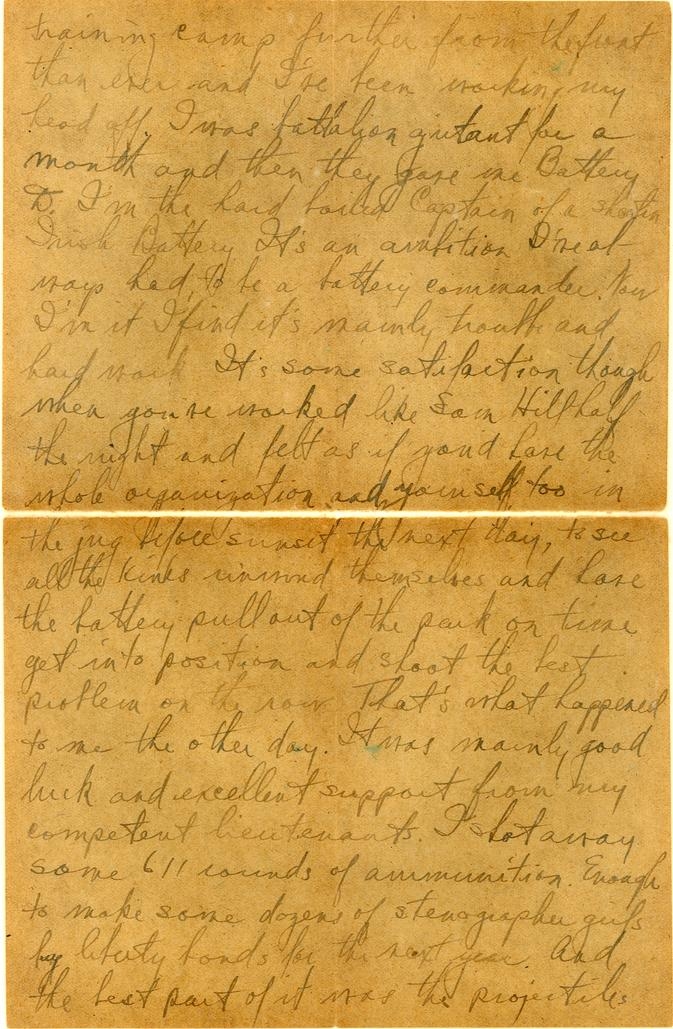 training camp further from the front
than ever and I've been working my
head off. I was battalion ajutant for a
month and then they gave me Battery
D. I'm the hard boiled Captain of a
Irish Battery It's an ambition I've al-
ways had, to be a battery commander. Now
I'm it I find it's mainly trouble and
hard work. It's some satisfaction though
when you've worked like Sam Hill half
the night and felt as if you'd have the
whole organization and yourself too in
the jug before sunset the next day, to see
all the kinks unwond themselves and have
the battery pull out of the park on time
get into position and shoot the best
problem on the row That's what happened
to me the other day. It was mainly good
luck and excellent support from my
competent lieutenants. I shot away
some 611 rounds of ammunition. Enough
to make some dozens of stenographer girls
buy liberty bonds for the next year. And
the best part of it was the projectiles